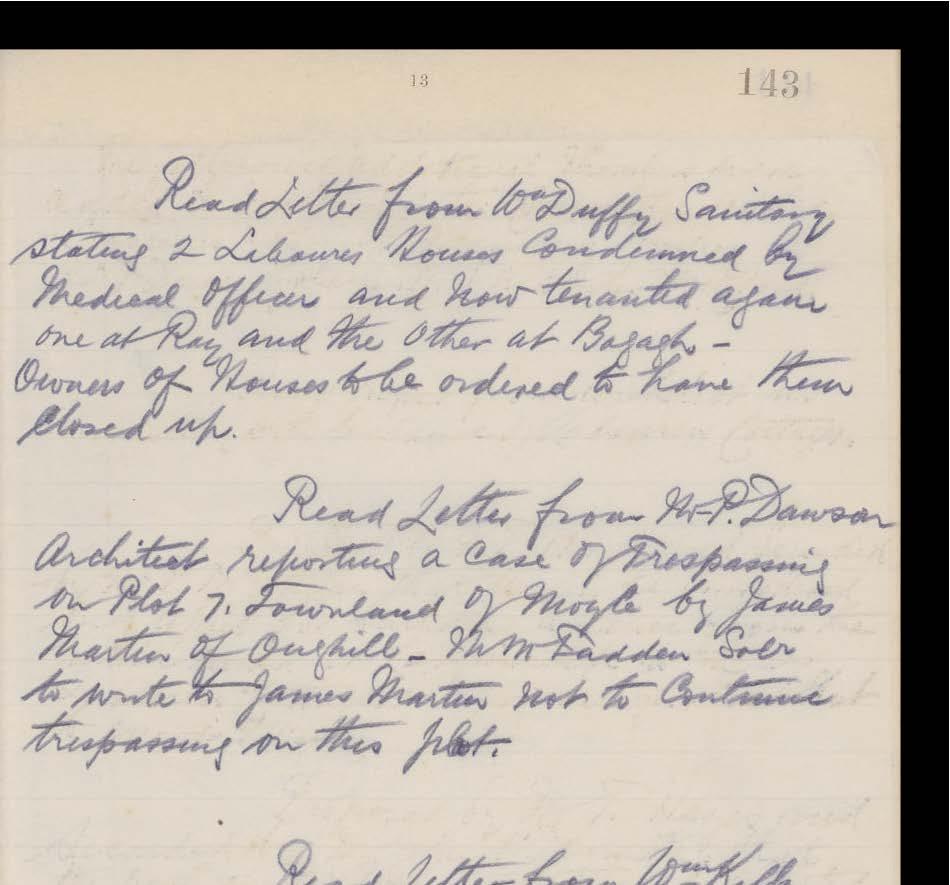 13
143
Read Letter from Wm Duffy Sanitary
stating 2 Laboures Houses Condemned by
Medical Officer and now tenanted again
one at Ray and the Other at Bogagh -
Owners of Houses to be ordered to have them
closed up.
Read Letter from Mr P. Dawson
Architect reporting a Case of Trespassing
on Plot 7. Townland of Moyle by James
Martin of Oughill - Mr McFadden Solr
to write to James Martin not to Continue
trespassing on this plot.
Read Letter from Wm Kelly